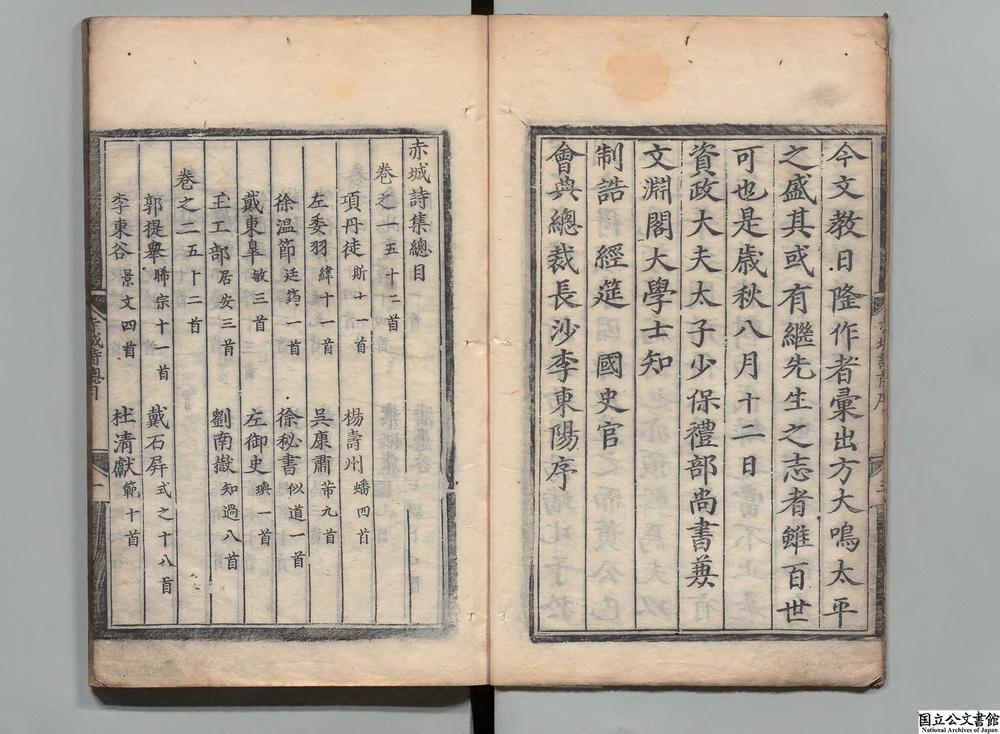 今文教日隆作者彙出方大鳴太平
之盛其或有繼先生之志者雖百世
可也是歳秋八月十二日
資政大夫太子少保禮部尚書兼
文淵閣大學士知
制誥 經筵 國史官
會典總裁長沙李東陽序
赤城詩集總目
卷之一五十二首
項丹徒斯十一首 楊壽州蟠四首
左委羽緯十一首 吳康肅芾九首
徐温節廷筠一首 徐秘書似道一首
戴東臯敏三首 左御史璵一首
王工部居安三首 劉南嶽知過八首
卷之二五十二首
郭提舉晞宗十一首 戴石屛式之十八首
李東谷景文四首 杜清獻範十首
国立公文書館
National Archives of Japan